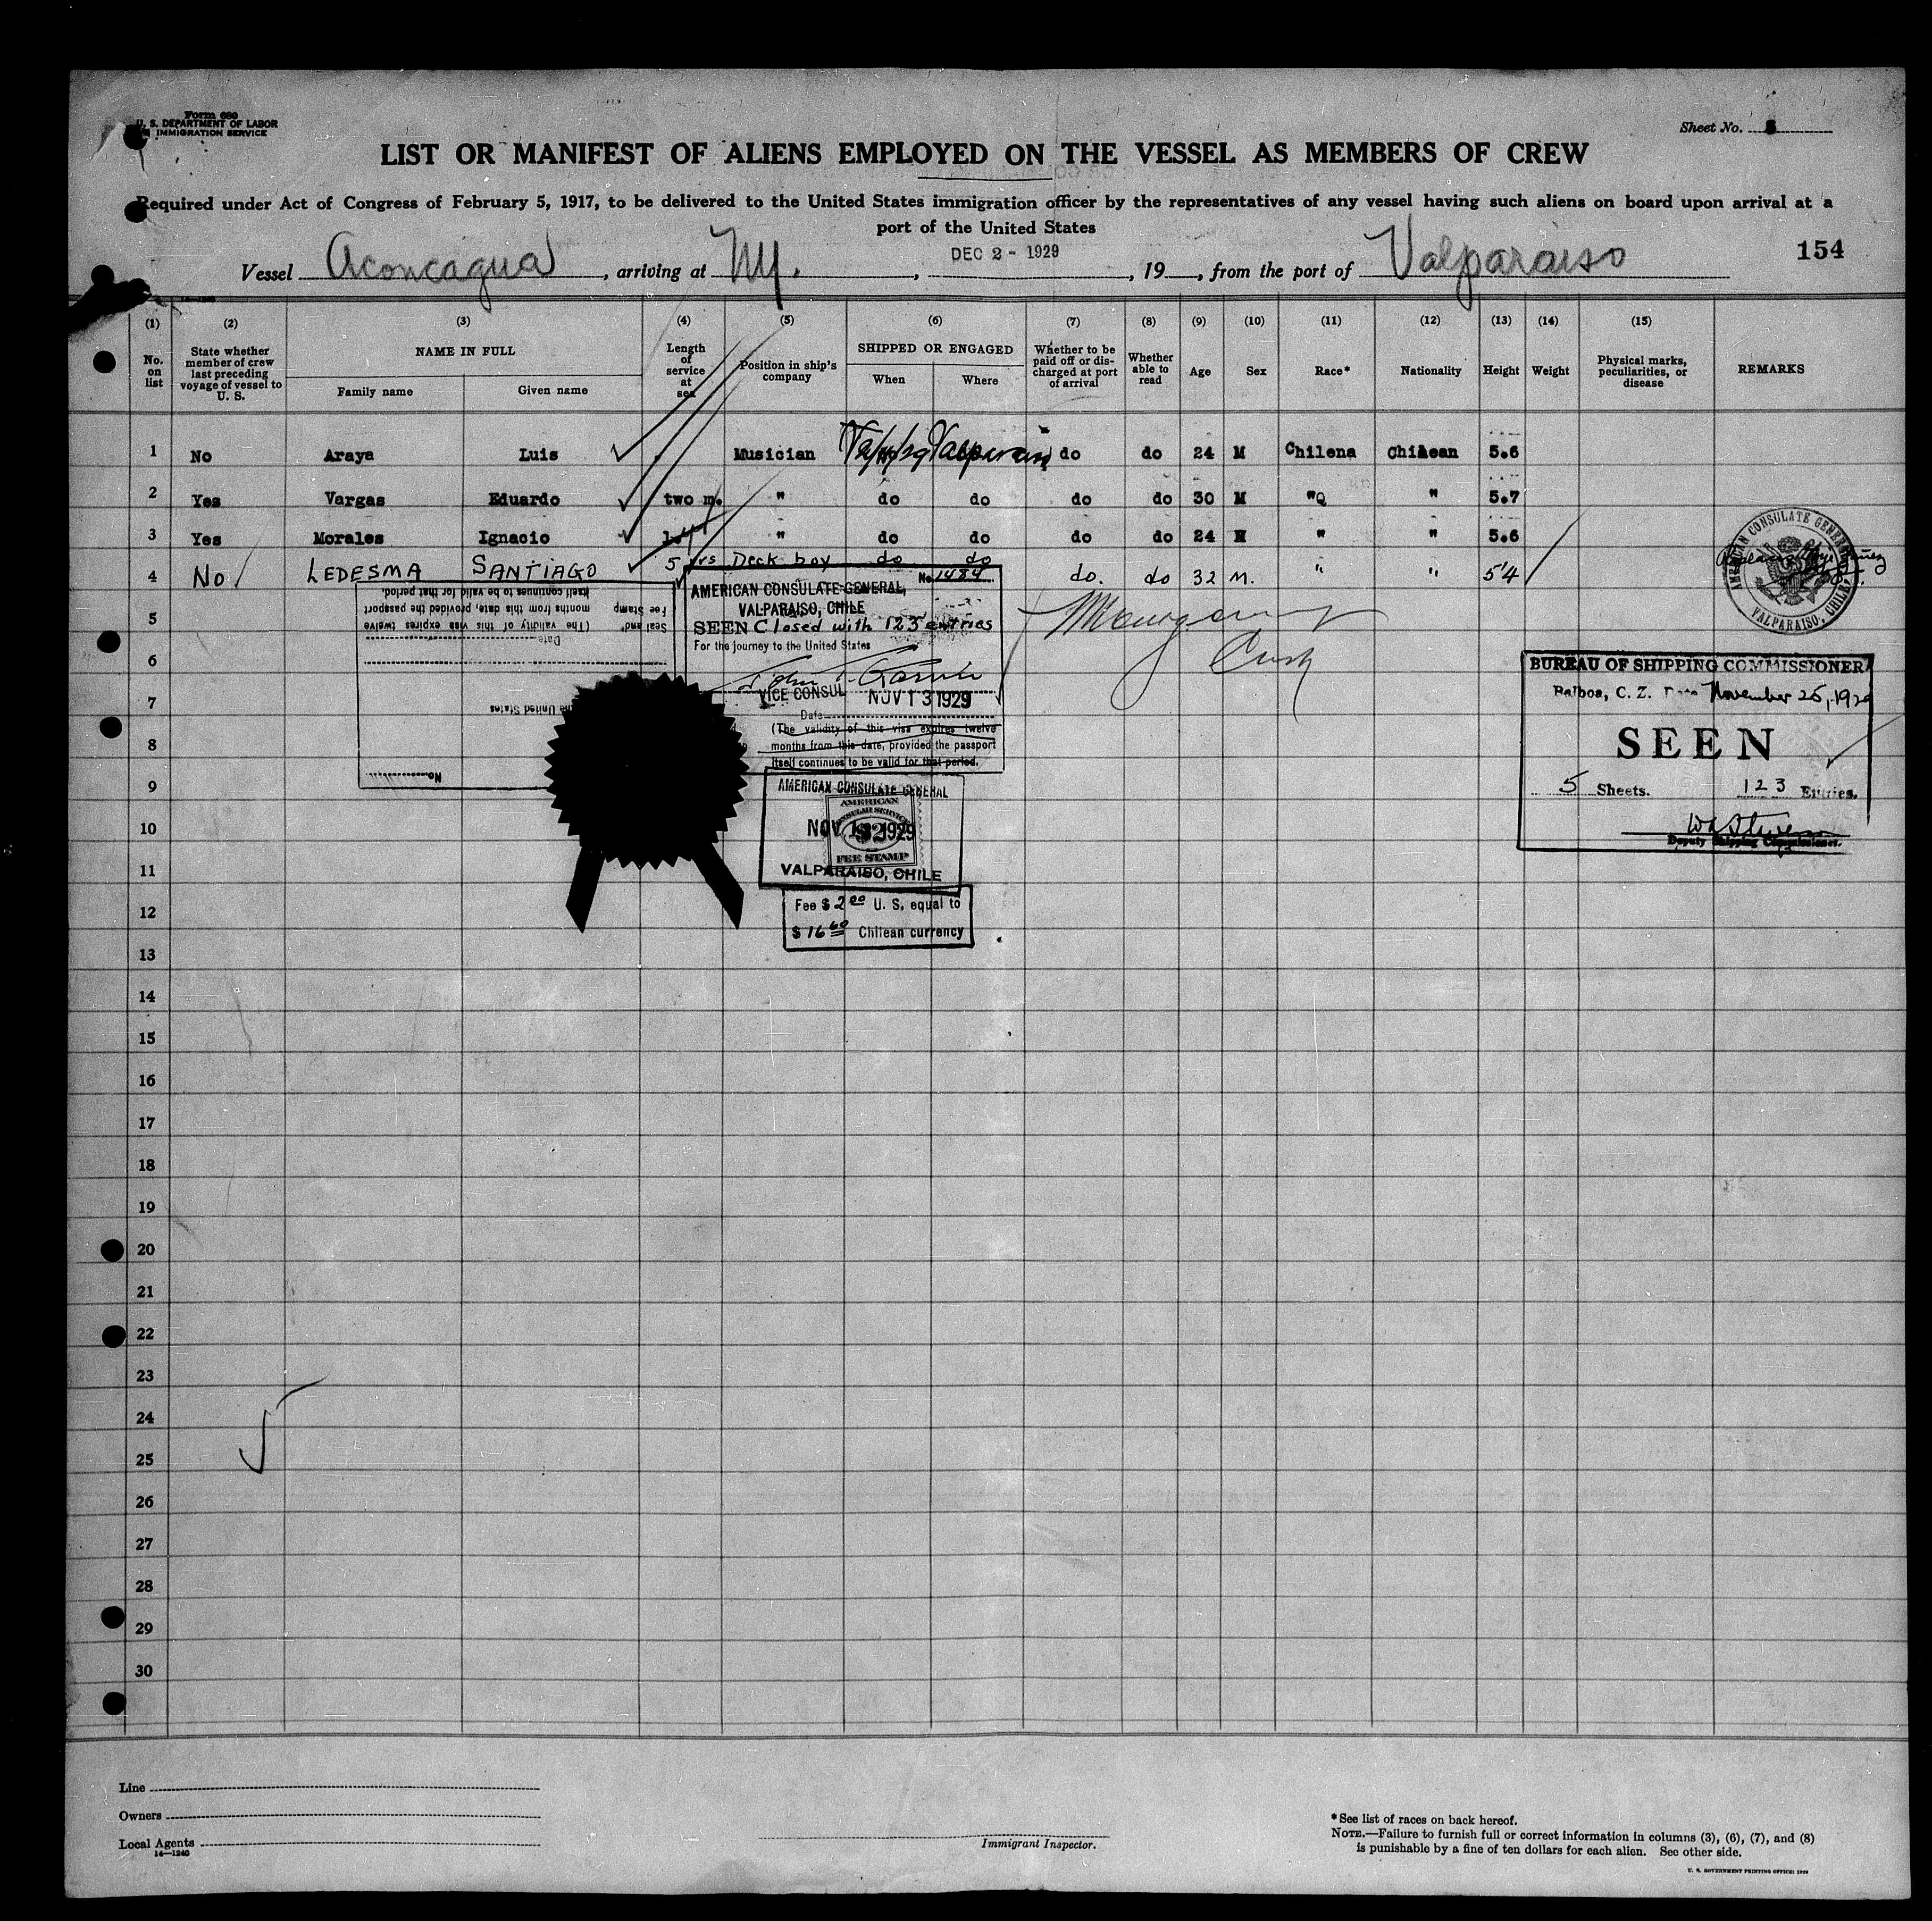 Form 680
U. S. DEPARTMENT OF LABOR
IMMIGRATION SERVICE
Sheet No. 5
LIST OR MANIFEST OF ALIENS EMPLOYED ON THE VESSEL AS MEMBERS OF CREW
Required under Act of Congress of February 5, 1917, to be delivered to the United States immigration officer by the representatives of any vessel having such aliens on board upon arrival at a
port of the United States
Vessel Aconcagua, arriving at NY., DEC 2 - 1929, 19, from the port of Valparaiso 154
(1) (2) (3) (4) (5) (6) (7) (8) (9) (10) (11) (12) (13) (14) (15)
No. on list
State whether member of crew last preceding voyage of vessel to U. S.
NAME IN FULL
Family name Given name
Length of service at sea
Position in ship's company
SHIPPED OR ENGAGED
When Where
Whether to be paid off or discharged at port of arrival
Whether able to read
Age Sex Race* Nationality Height Weight
Physical marks, peculiarities, or disease
REMARKS
1 No Araya Luis Musician Valparaiso do do 24 M Chilena Chilean 5.6
2 Yes Vargas Eduardo two m. " do do do do 30 M " " 5.7
3 Yes Morales Ignacio " do do do do 24 M " " 5.6
4 No LEDESMA SANTIAGO 5 yrs Deck boy do do do. do 32 M. " " 5'4
5
6
7
8
9
10
11
12
13
14
15
16
17
18
19
20
21
22
23
24
25
26
27
28
29
30
Seal and Fee Stamp
(The validity of this visa expires twelve
months from this date, provided the passport
itself continues to be valid for that period.
Date
the United States
No.
No. 1484
AMERICAN CONSULATE GENERAL,
VALPARAISO, CHILE
SEEN Closed with 123 entries
For the journey to the United States
VICE CONSUL NOV 13 1929
Date
(The validity of this visa expires twelve
months from this date, provided the passport
itself continues to be valid for that period.
AMERICAN CONSULATE GENERAL
NOV 1929
VALPARAISO, CHILE
AMERICAN
CONSULAR SERVICE
$2
FEE STAMP
Fee $ 2.00 U. S. equal to
$ 16.60 Chilean currency
AMERICAN CONSULATE GENERAL
VALPARAISO, CHILE
BUREAU OF SHIPPING COMMISSIONER
Balboa, C. Z. Date November 25, 1929
SEEN
5 Sheets. 123 Entries.
Deputy Shipping Commissioner.
Line
Owners
Local Agents
14—1240
Immigrant Inspector.
*See list of races on back hereof.
NOTE.—Failure to furnish full or correct information in columns (3), (6), (7), and (8)
is punishable by a fine of ten dollars for each alien. See other side.
U. S. GOVERNMENT PRINTING OFFICE: 1929